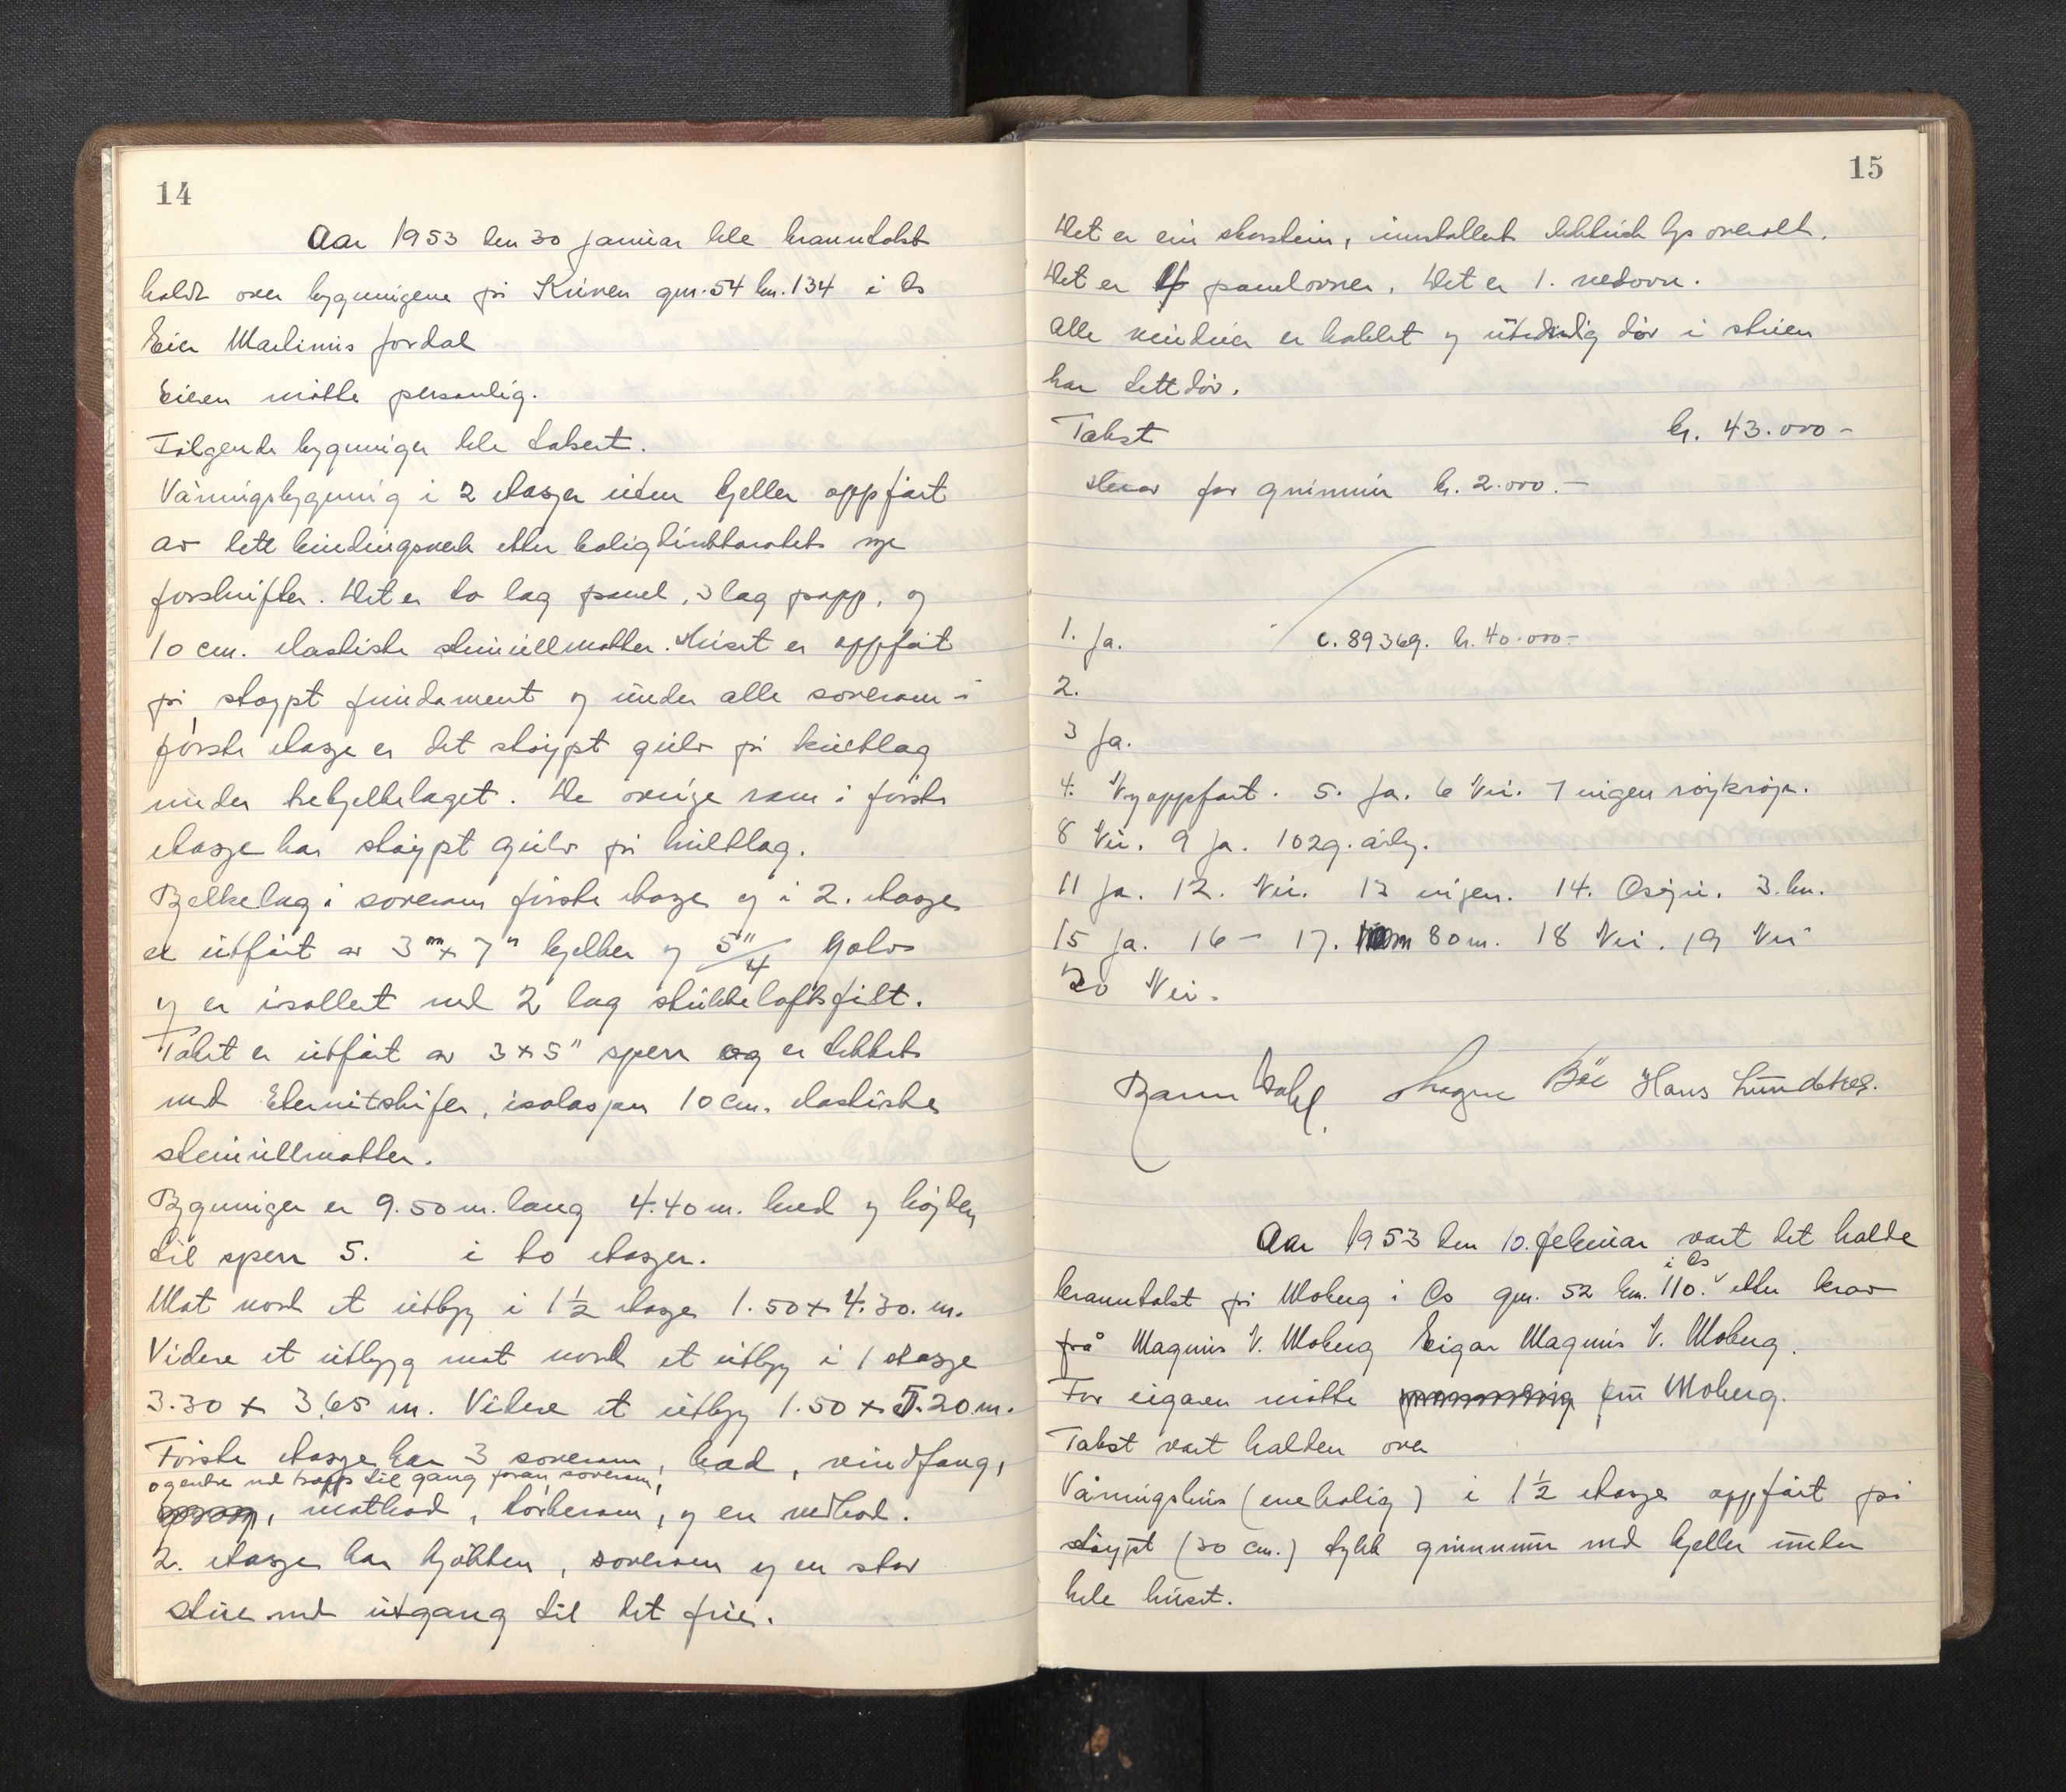 14
Aar 1953 den 30 januar ble branntakst
holdt over bygningene på Kuven gnr. 54 bnr. 134 i Os
Eier Martinus Jordal
Eieren møtte personlig.
Følgende bygninger ble taksert.
Våningsbygning i 2 etasjer uten kjeller oppført
av lett bindingsverk etter boligdirektoratets nye
forskrifter. Det er to lag panel, 3 lag papp, og
10 cm. elastiske steinullmatter. Huset er oppført
på støypt fundament og under alle soverom i
første etasje er det støypt gulv på kultlag
under trebjelkelaget. De øvrige rom i første
etasje har støypt gulv på kultlag.
Bjelkelag i soverom første etasje og i 2. etasje
er utført av 3"x7" bjelker og 5"/4 golv
og er isollert med 2 lag stubbeloftsfilt.
Taket er utført av 3x5" sperr og er tekket
med Eternitskifer, isolasjon 10 cm. elastiske
steinullmatter.
Bygningen er 9.50 m. lang 4.40 m. bred og højden
til sperr 5. i to etasjer.
Mot nord et utbyg i 1½ etasje 1.50 x 4.30. m.
Videre et utbygg mot nord et utbyg i 1 etasje
3.30 x 3.65 m. Videre et utbyg 1.50 x 5.20 m.
Første etasje har 3 soverom, bad, vindfang,
og entre med trapp til gang foran soverom,
matbod, tørkerom, og en vedbod.
2. etasje har kjøkken, soverom og en stor
stue med utgang til det frie.
15
Det er ein skorstein, innstallert elektrisk lys overalt.
Det er 4 panelovner. Det er 1. vedovn.
Alle vinduer er koblet og utvendig dør i stuen
har tett dør.
Takst kr. 43.000-
Herav for grunmur kr. 2.000.-
1. Ja. c. 89369. kr. 40.000-
2.
3 Ja.
4. Nyoppført. 5. Ja. 6 Nei. 7 ingen røykrøyr.
8 Nei. 9 Ja. 10 2g. årlig.
11 Ja. 12. Nei. 13 ingen. 14. Osøyri. 3. km.
15 Ja. 16 - 17. 80 m. 18 Nei. 19 Nei
20 Nei.
Magne Bøe Hans Lundetræ.
Aar 1953 den 10. februar vart det halde
i Os
branntakst på Moberg i Os gnr. 52 bnr. 110. etter krav
frå Magnus V. Moberg Eigar Magnus V. Moberg.
For eigaren møtte fru Moberg.
Takst vart halden over
Våningshus (enebolig) i 1½ etasje oppført på
støypt (30 cm.) tykk grunnmur med kjeller under
hele huset.